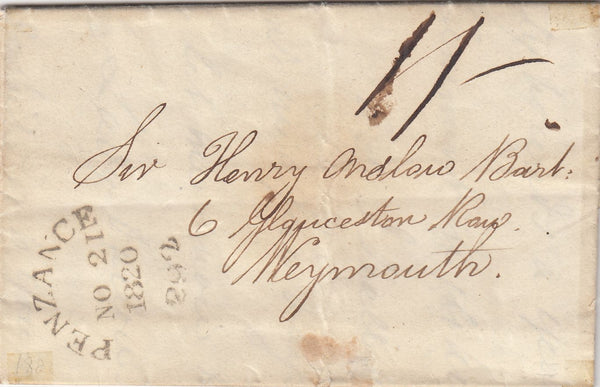 11/-
Sir Henry Onslow Bart:
6 Glouceston Row.
Weymouth.
PENZANCE
NO 21
1820
292